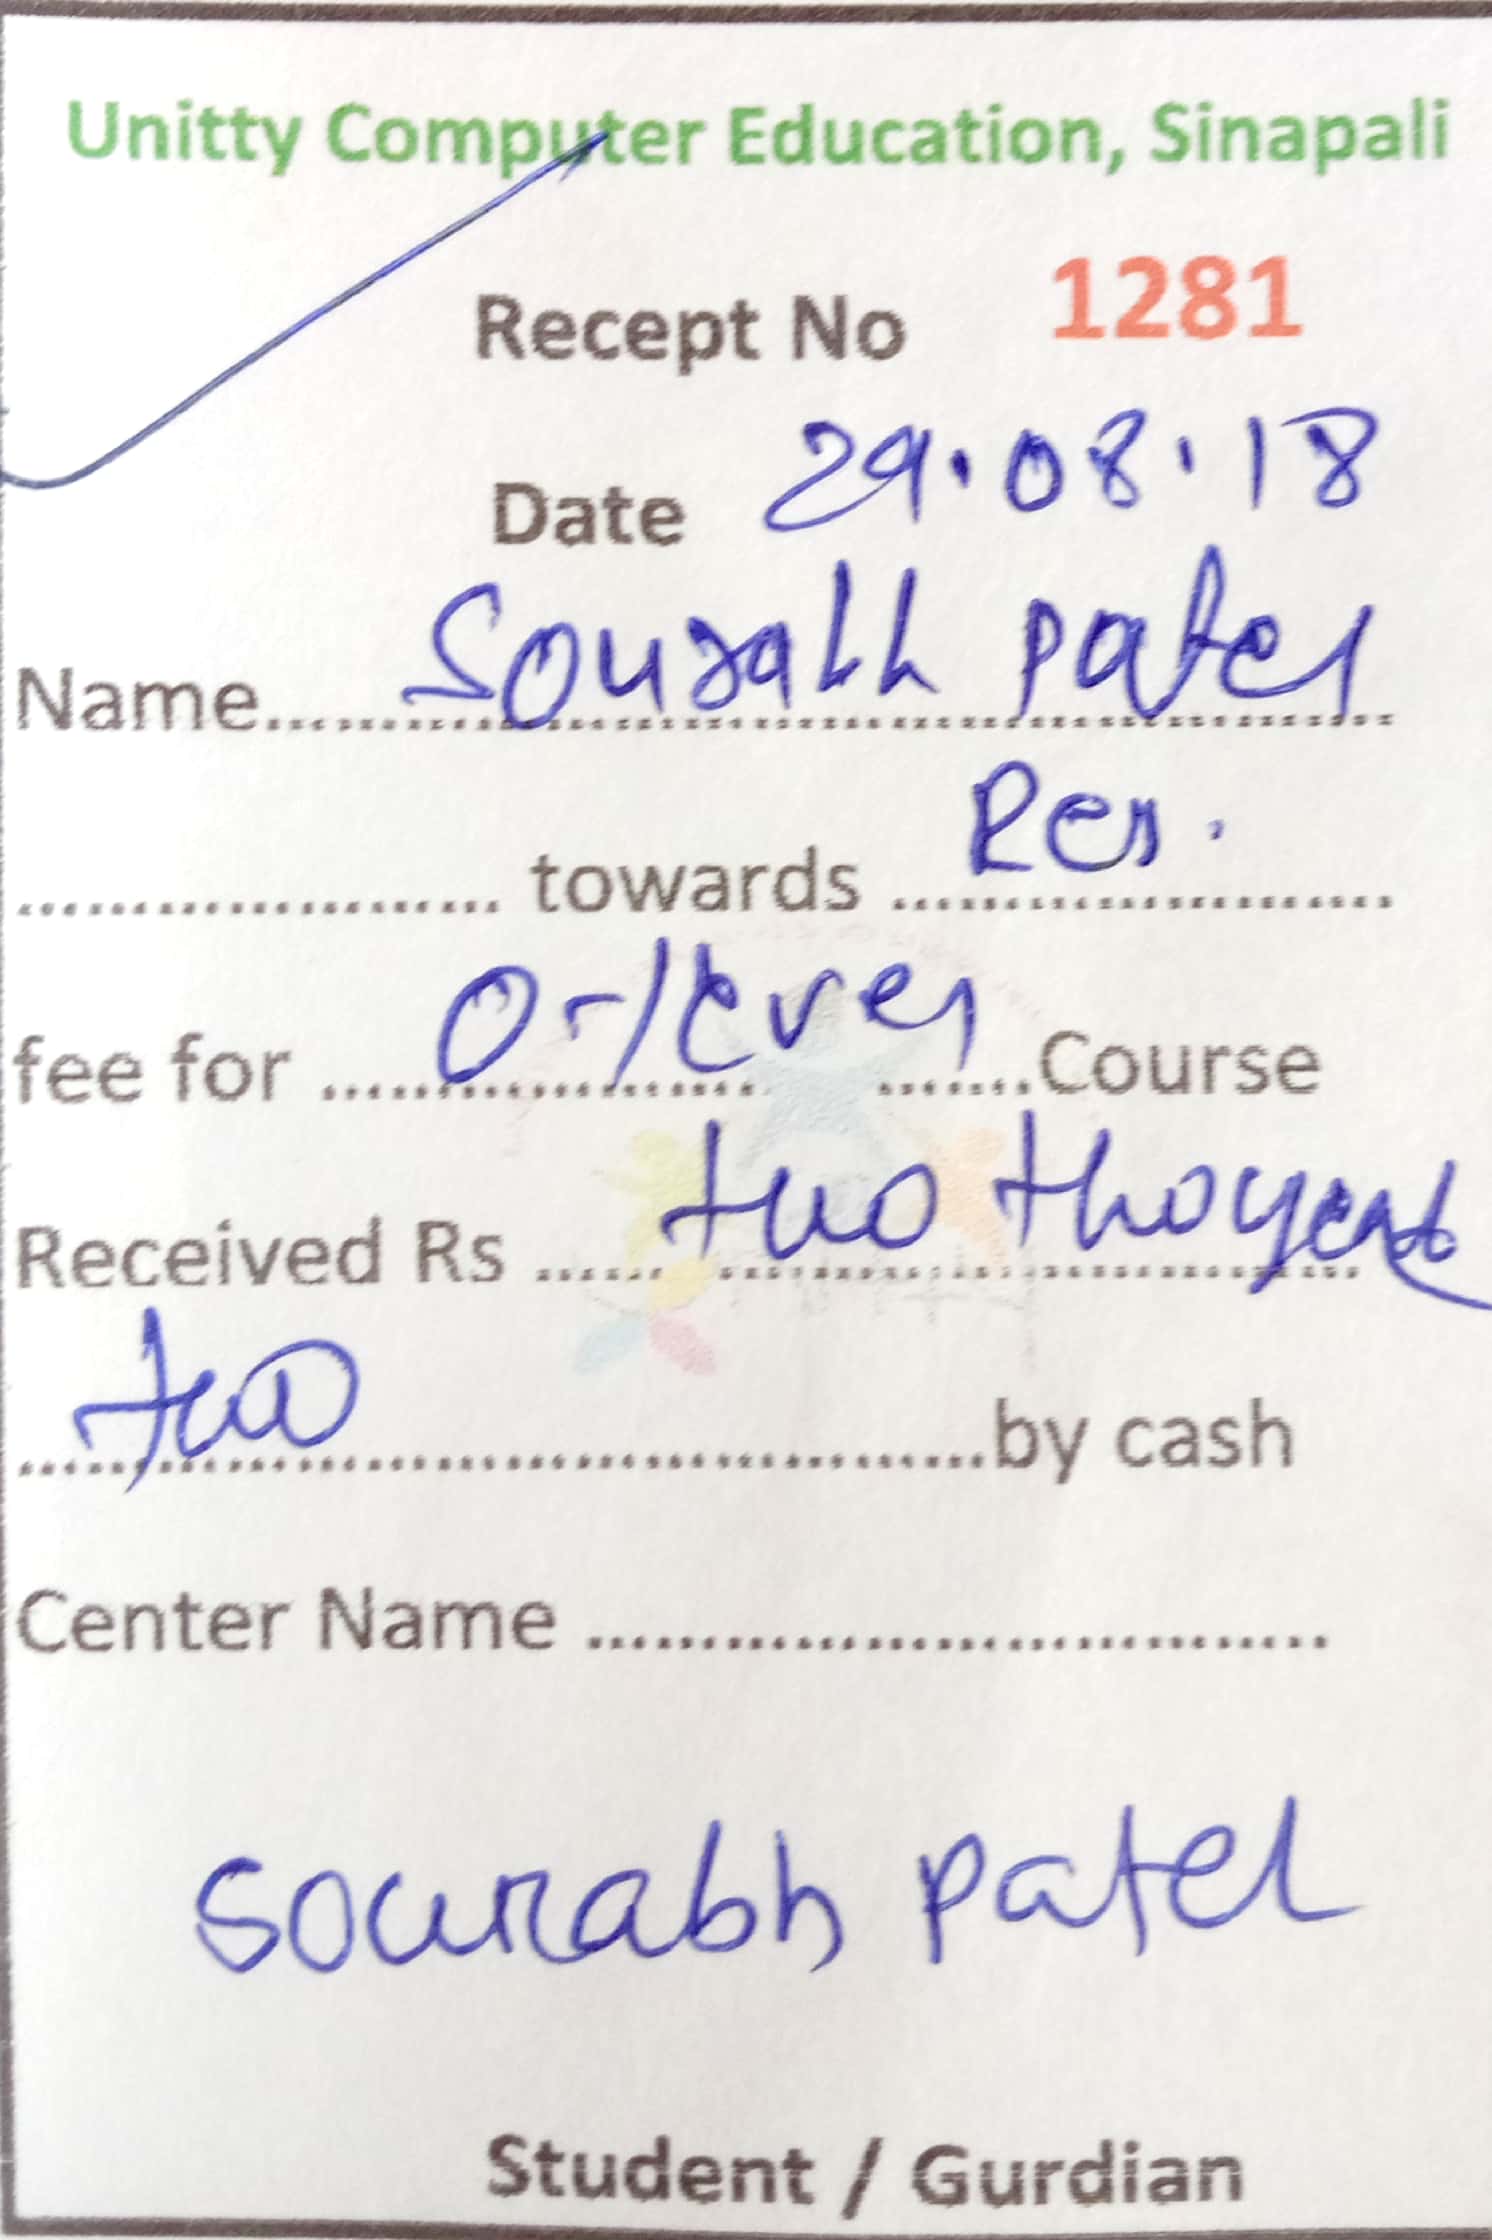 Unitty Computer Education, Sinapali
Recept No 1281
Date 29.08.18
Name.... Sourabh patel
.... towards .... Res.
fee for .... O-level ....Course
Received Rs .... two
.... two ....by cash
Center Name ....
sourabh patel
Student / Gurdian